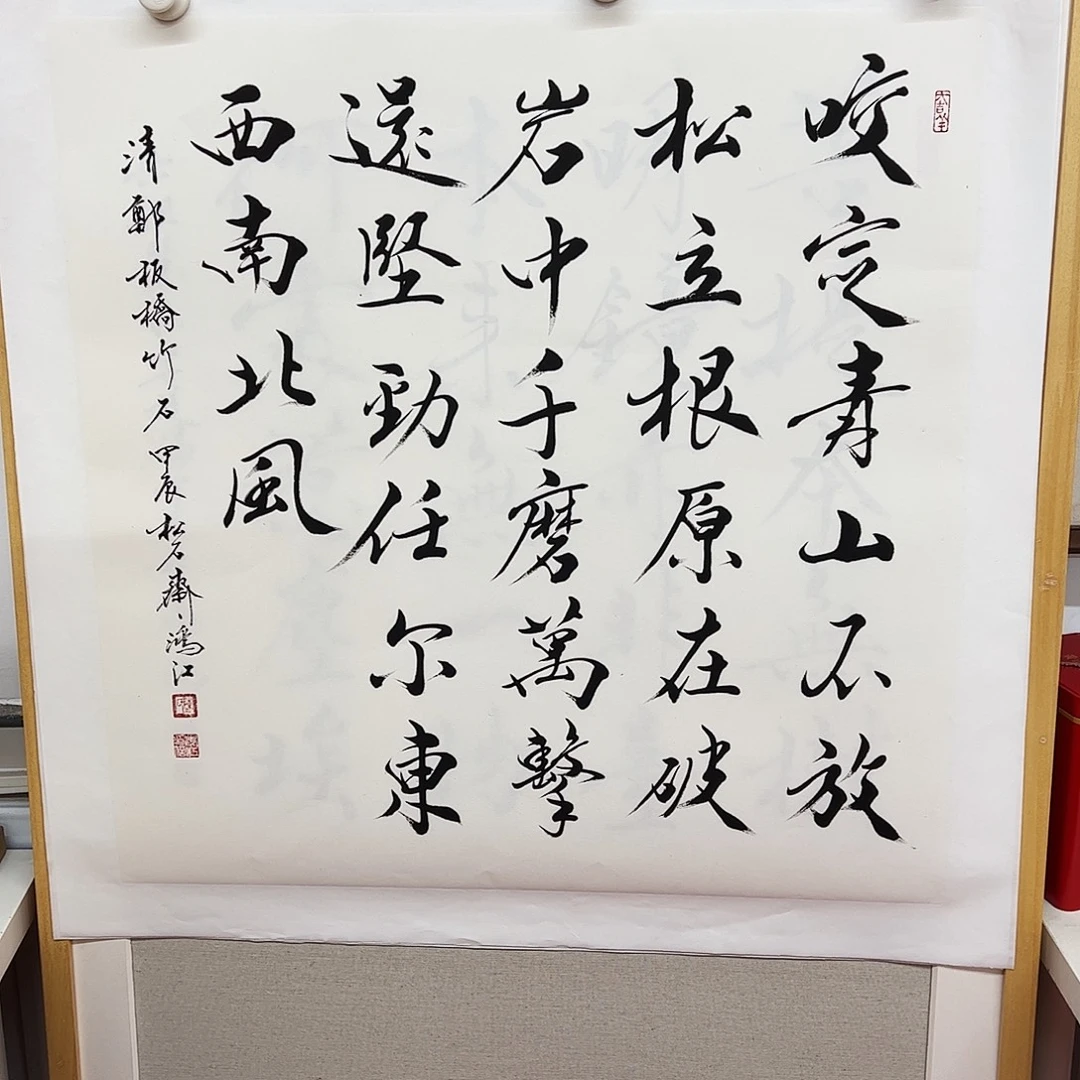 咬定青山不放
松立根原在破
岩中千磨萬擊
還堅勁任尔東
西南北風
清鄭板橋竹石甲辰松石齋鴻江